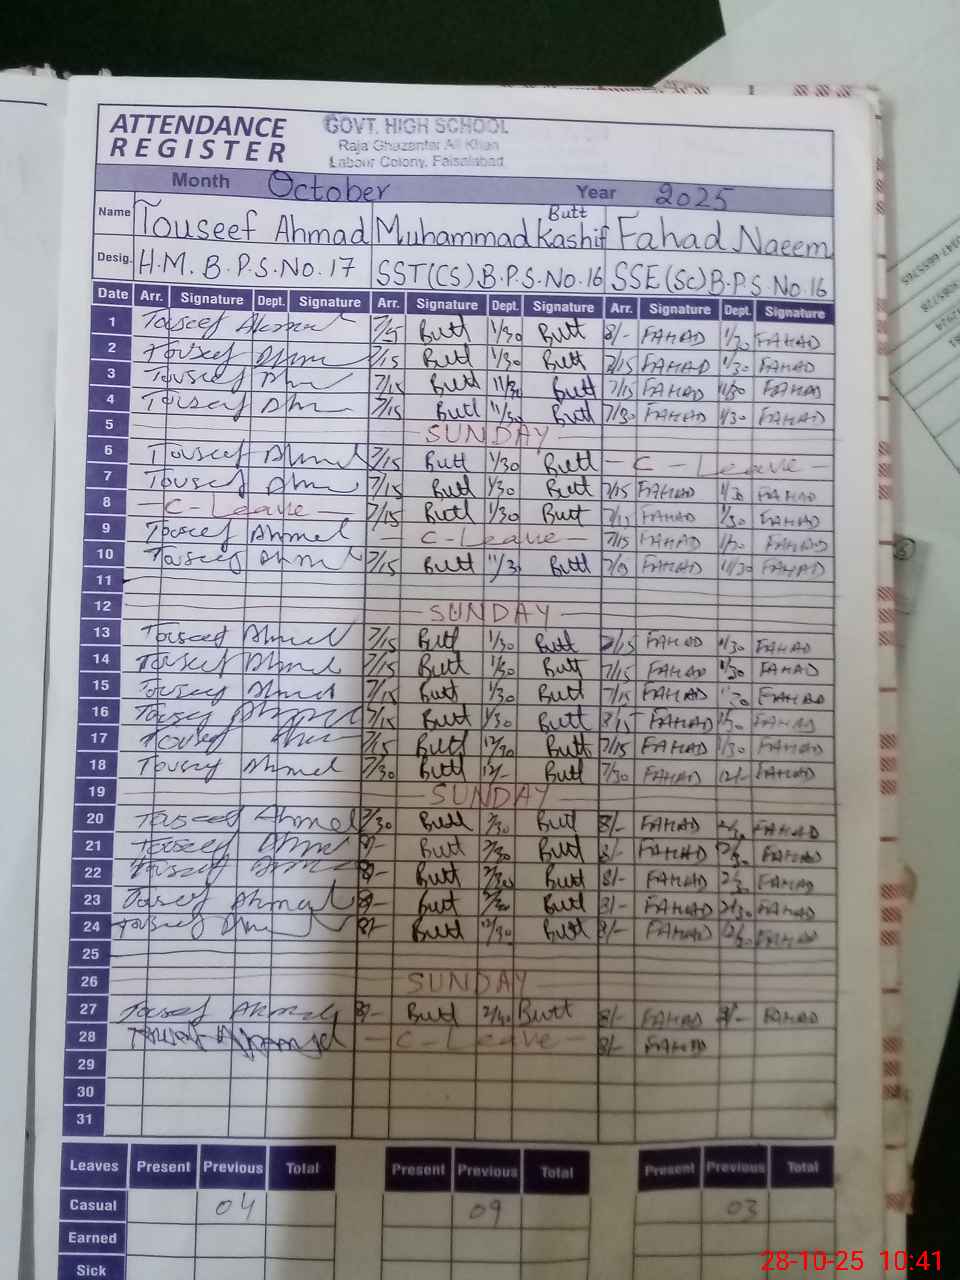 ATTENDANCE REGISTER
GOVT. HIGH SCHOOL
Raja Ghazanfar Ali Khan
Labour Colony, Faisalabad
Month October Year 2025
Name Touseef Ahmad Muhammad Kashif Butt Fahad Naeem
Desig. H.M. B.P.S. No. 17 SST(CS) B.P.S. No. 16 SSE(Sc) B.P.S. No. 16
Date Arr. Signature Dept. Signature Arr. Signature Dept. Signature Arr. Signature Dept. Signature
1 Touseef Ahmad Butt 1/30 Butt 8/- FAHAD FAHAD
2 Touseef Butt 1/30 Butt FAHAD 1/30 FAHAD
3 Touseef 7/15 Butt Butt 7/15 FAHAD FAHAD
4 7/15 Butt 11/30 Butt 7/30 FAHAD 1/30 FAHAD
5 SUNDAY
6 Touseef Ahmad 7/15 Butt 1/30 Butt - C - Leave -
7 Touseef 7/15 Butt 1/30 Butt 7/15 FAHAD FAHAD
8 - C - Leave - 7/15 Butt 1/30 Butt FAHAD 1/30 FAHAD
9 Touseef Ahmad - C - Leave - 7/15 FAHAD FAHAD
10 Touseef Ahmad 7/15 Butt 11/30 Butt FAHAD 11/30 FAHAD
11
12 SUNDAY
13 Touseef Ahmad 7/15 Butt 1/30 Butt FAHAD FAHAD
14 Touseef Ahmad 7/15 Butt 1/30 Butt 7/15 FAHAD FAHAD
15 Touseef Ahmad 7/15 Butt 1/30 Butt 7/15 FAHAD FAHAD
16 Touseef 7/15 Butt 1/30 Butt 8/15 FAHAD FAHAD
17 Touseef 7/15 Butt 12/30 Butt 7/15 FAHAD 1/30 FAHAD
18 Touseef Ahmad 7/30 Butt 12/- Butt 7/30 FAHAD 12/- FAHAD
19 SUNDAY
20 Touseef Ahmad 7/30 Butt 2/30 Butt 8/- FAHAD FAHAD
21 Touseef 8/- Butt 2/30 Butt 8/- FAHAD FAHAD
22 Touseef 8/- Butt 2/30 Butt 8/- FAHAD FAHAD
23 Touseef Ahmad 8/- Butt Butt 8/- FAHAD 2/30 FAHAD
24 Touseef 8/- Butt 12/30 Butt 8/- FAHAD FAHAD
25
26 SUNDAY
27 Touseef Ahmad 8/- Butt 2/40 Butt 8/- FAHAD FAHAD
28 - C - Leave - 8/- FAHAD
29
30
31
Leaves Present Previous Total Present Previous Total Present Previous Total
Casual 04 09 03
Earned
Sick
28-10-25 10:41